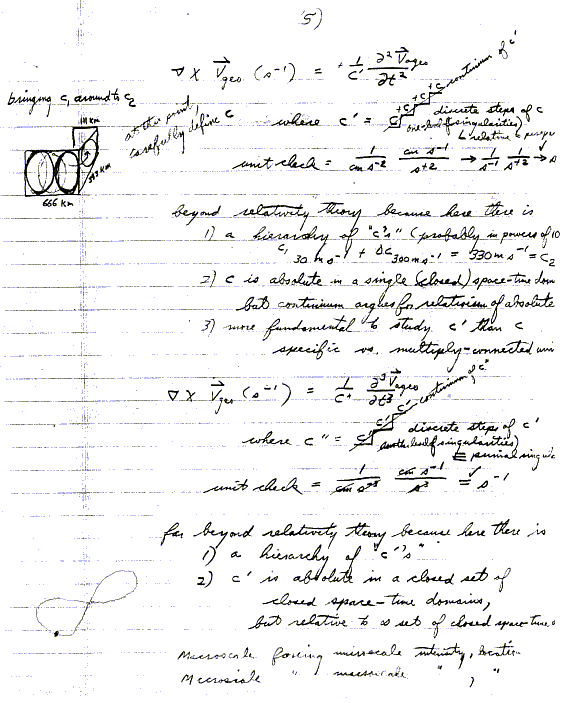 5)
∇ × V⃗geo (s⁻¹) = + 1/c' ∂²V⃗ageo/∂t²
+c +c +c continuum of c'
bringing c₁ around to c₂
at this point, carefully define c
where c' = c discrete steps of c
one-level of singularities)
↳ relative to
111 Km
333 Km
666 Km
unit check = 1/cm s⁻² cm s⁻¹/s⁺² → 1/s⁻¹ 1/s⁺² → s
beyond relativity theory because here there is
1) a hierarchy of "c's" (probably in powers of 10
c₁ 30 m s⁻¹ + Δc 300 m s⁻¹ = 330 m s⁻¹ = c₂
2) c is absolute in a single (closed) space-time dom
but continuum argues for relativism of absolute
3) more fundamental to study c' than c
specific vs. multiply-connected uni
∇ × V⃗geo (s⁻¹) = 1/c'' ∂³V⃗ageo/∂t³
c' c' continuum of c''
where c'' = c' discrete steps of c'
another level of singularities)
≡ primal singula
unit check = 1/cm s⁻³ cm s⁻¹/s³ = s⁻¹
far beyond relativity theory because here there is
1) a hierarchy of "c''s"
2) c' is absolute in a closed set of
closed space-time domains,
but relative to ∞ set of closed space-time
Macroscale forcing microscale intensity, location
Microscale " macroscale " , "